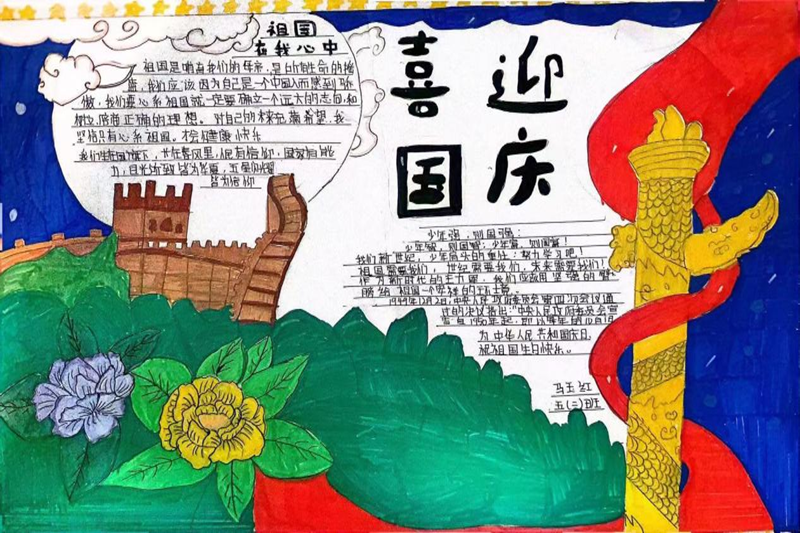 祖国
在我心中
祖国是哺育我们的母亲,是所有生命的摇
篮,我们应该因为自己是一个中国人而感到骄
傲,我们要心系祖国就一定要确立一个远大的志向,和
树立 正确的理想。对自己的未来充满希望,我
坚信只有心系祖国。才会健康快乐
我们生在国旗下,长在春风里,人民有信仰,国家有能
力,目光所致皆为华夏,五星闪耀
皆为信仰
喜迎
国庆
少年强,则国强;
少年 ,则国 ;少年富,则国富!
我们新世纪,少年肩头的重任:努力学习吧!
祖国需要我们,世纪需要我们,未来需要我们!
作为新时代的主力军,我们应该用坚强的臂
膀给祖国一个坚强的环境。
1949年12月2日,中央人民政府委员会第四次会议通
过的决议指出:"中央人民政府委员会宣
告自1950年起,即以每年的10月1日
为中华人民共和国国庆日,
祝祖国生日快乐。
马玉红
五(二)班